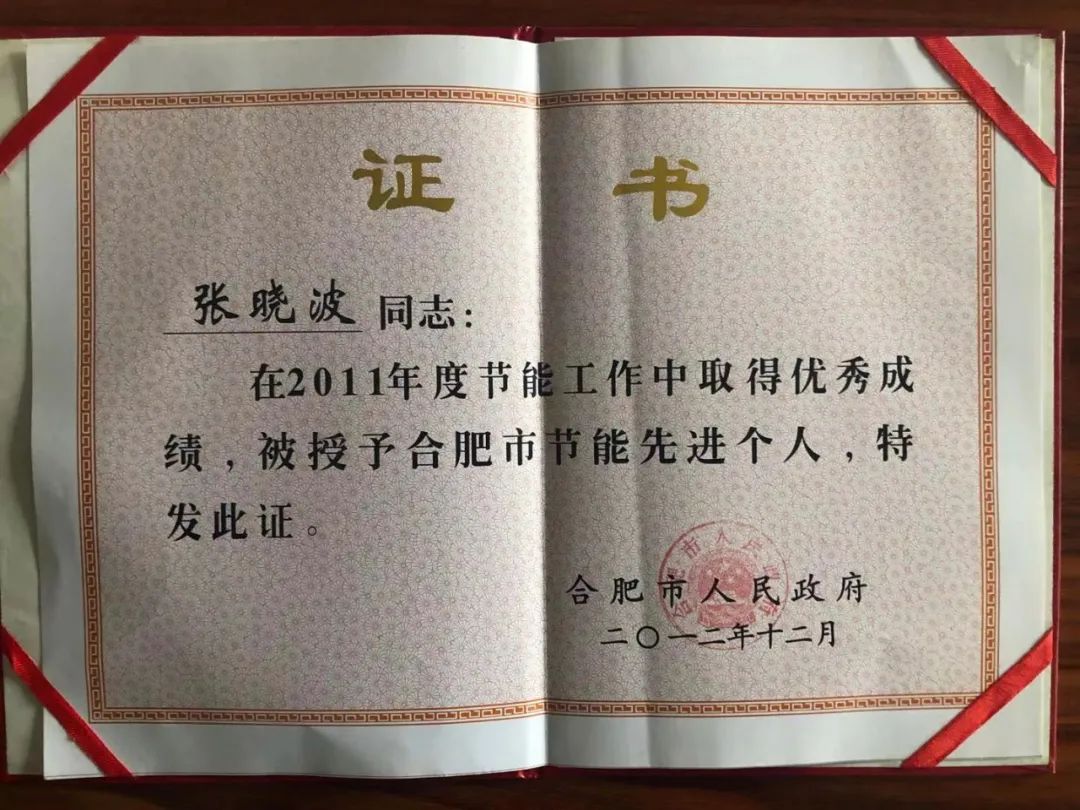 证书
张晓波 同志：
在2011年度节能工作中取得优秀成
绩，被授予合肥市节能先进个人，特
发此证。
合肥市人民政府
合肥市人民政府
二〇一二年十二月